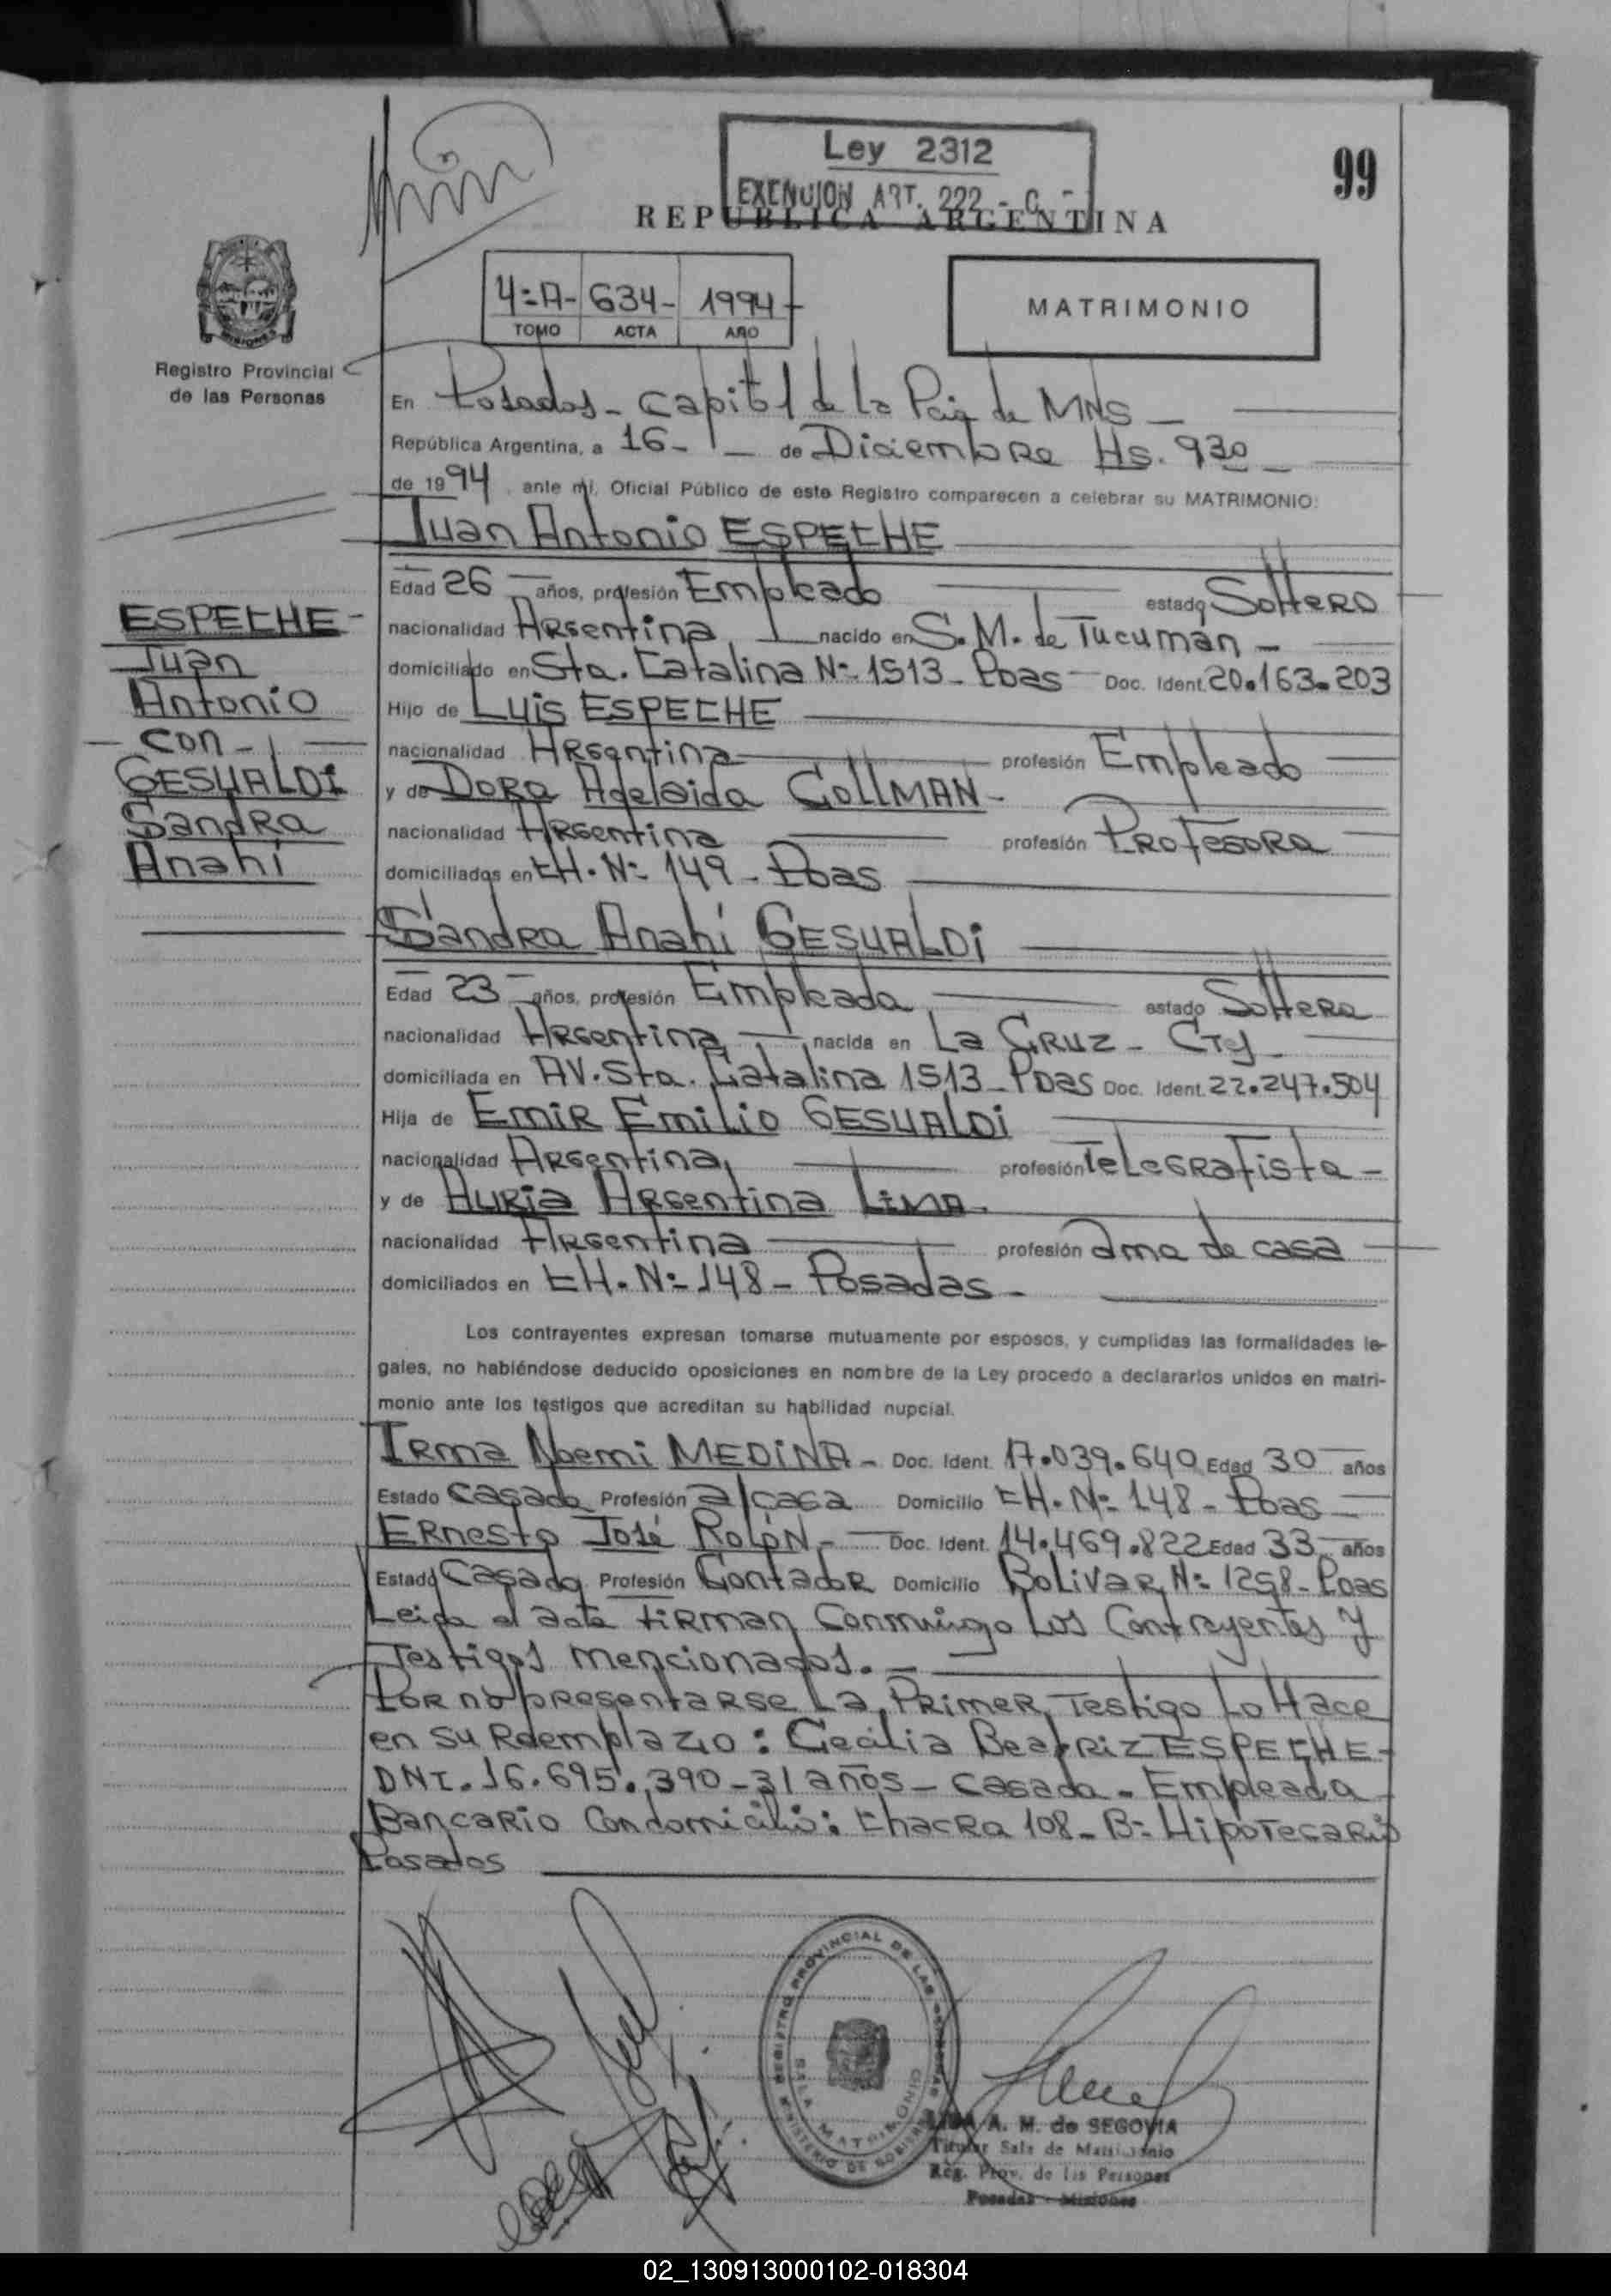 Ley 2312
EXENCION ART. 222 - C -
99
REPUBLICA ARGENTINA
4º A- 634- 1994-
TOMO ACTA AÑO
MATRIMONIO
MISIONES
Registro Provincial
de las Personas
En Posadas - Capital de la Pcia de MNS -
República Argentina, a 16 - - de Diciembre Hs. 930 -
de 1994, ante mí, Oficial Público de este Registro comparecen a celebrar su MATRIMONIO:
Juan Antonio ESPECHE
Edad 26 años, profesión Empleado estado Soltero
nacionalidad Argentina nacido en S. M. de Tucuman -
domiciliado en Sta. Catalina Nº 1513 - Pdas Doc. Ident. 20.163.203
Hijo de Luis ESPECHE
nacionalidad Argentina profesión Empleado
y de Dora Adelaida COLLMAN -
nacionalidad Argentina profesión Profesora
domiciliados en CH. Nº 149 - Pdas
ESPECHE -
Juan
Antonio
- con -
GESUALDI
Sandra
Anahí
Sandra Anahí GESUALDI
Edad 23 años, profesión Empleada estado Soltera
nacionalidad Argentina nacida en La CRUZ - Ctes
domiciliada en AV. Sta. Catalina 1513 - Pdas Doc. Ident. 22.247.504
Hija de Emir Emilio GESUALDI
nacionalidad Argentina profesión Telegrafista -
y de Auria Argentina LIMA -
nacionalidad Argentina profesión ama de casa
domiciliados en CH. Nº 148 - Posadas -
Los contrayentes expresan tomarse mutuamente por esposos, y cumplidas las formalidades le-
gales, no habiéndose deducido oposiciones en nombre de la Ley procedo a declararlos unidos en matri-
monio ante los testigos que acreditan su habilidad nupcial.
Irma Noemi MEDINA - Doc. Ident. 17.039.640 Edad 30 años
Estado Casada Profesión a/casa Domicilio CH. Nº 148 - Pdas
Ernesto José ROLÓN - Doc. Ident. 14.469.822 Edad 33 años
Estado Casado Profesión Contador Domicilio Bolivar Nº 1258 - Pdas
Leida el acta firman Conmingo Los Contrayentes y
Testigos mencionados. -
Por no presentarse La Primer Testigo Lo Hace
en su Reemplazo : Cecilia Beatriz ESPECHE -
DNI. 16.695.390 - 31 años - Casada - Empleada
Bancario Con domicilio : Chacra 108 - Bº Hipotecario
Posadas
REGISTRO PROVINCIAL DE LAS PERSONAS
SALA MATRIMONIO
MINISTERIO DE GOBIERNO
A. M. de SEGOVIA
Titular Sala de Matrimonio
Reg. Prov. de las Personas
Posadas - Misiones
02_130913000102-018304